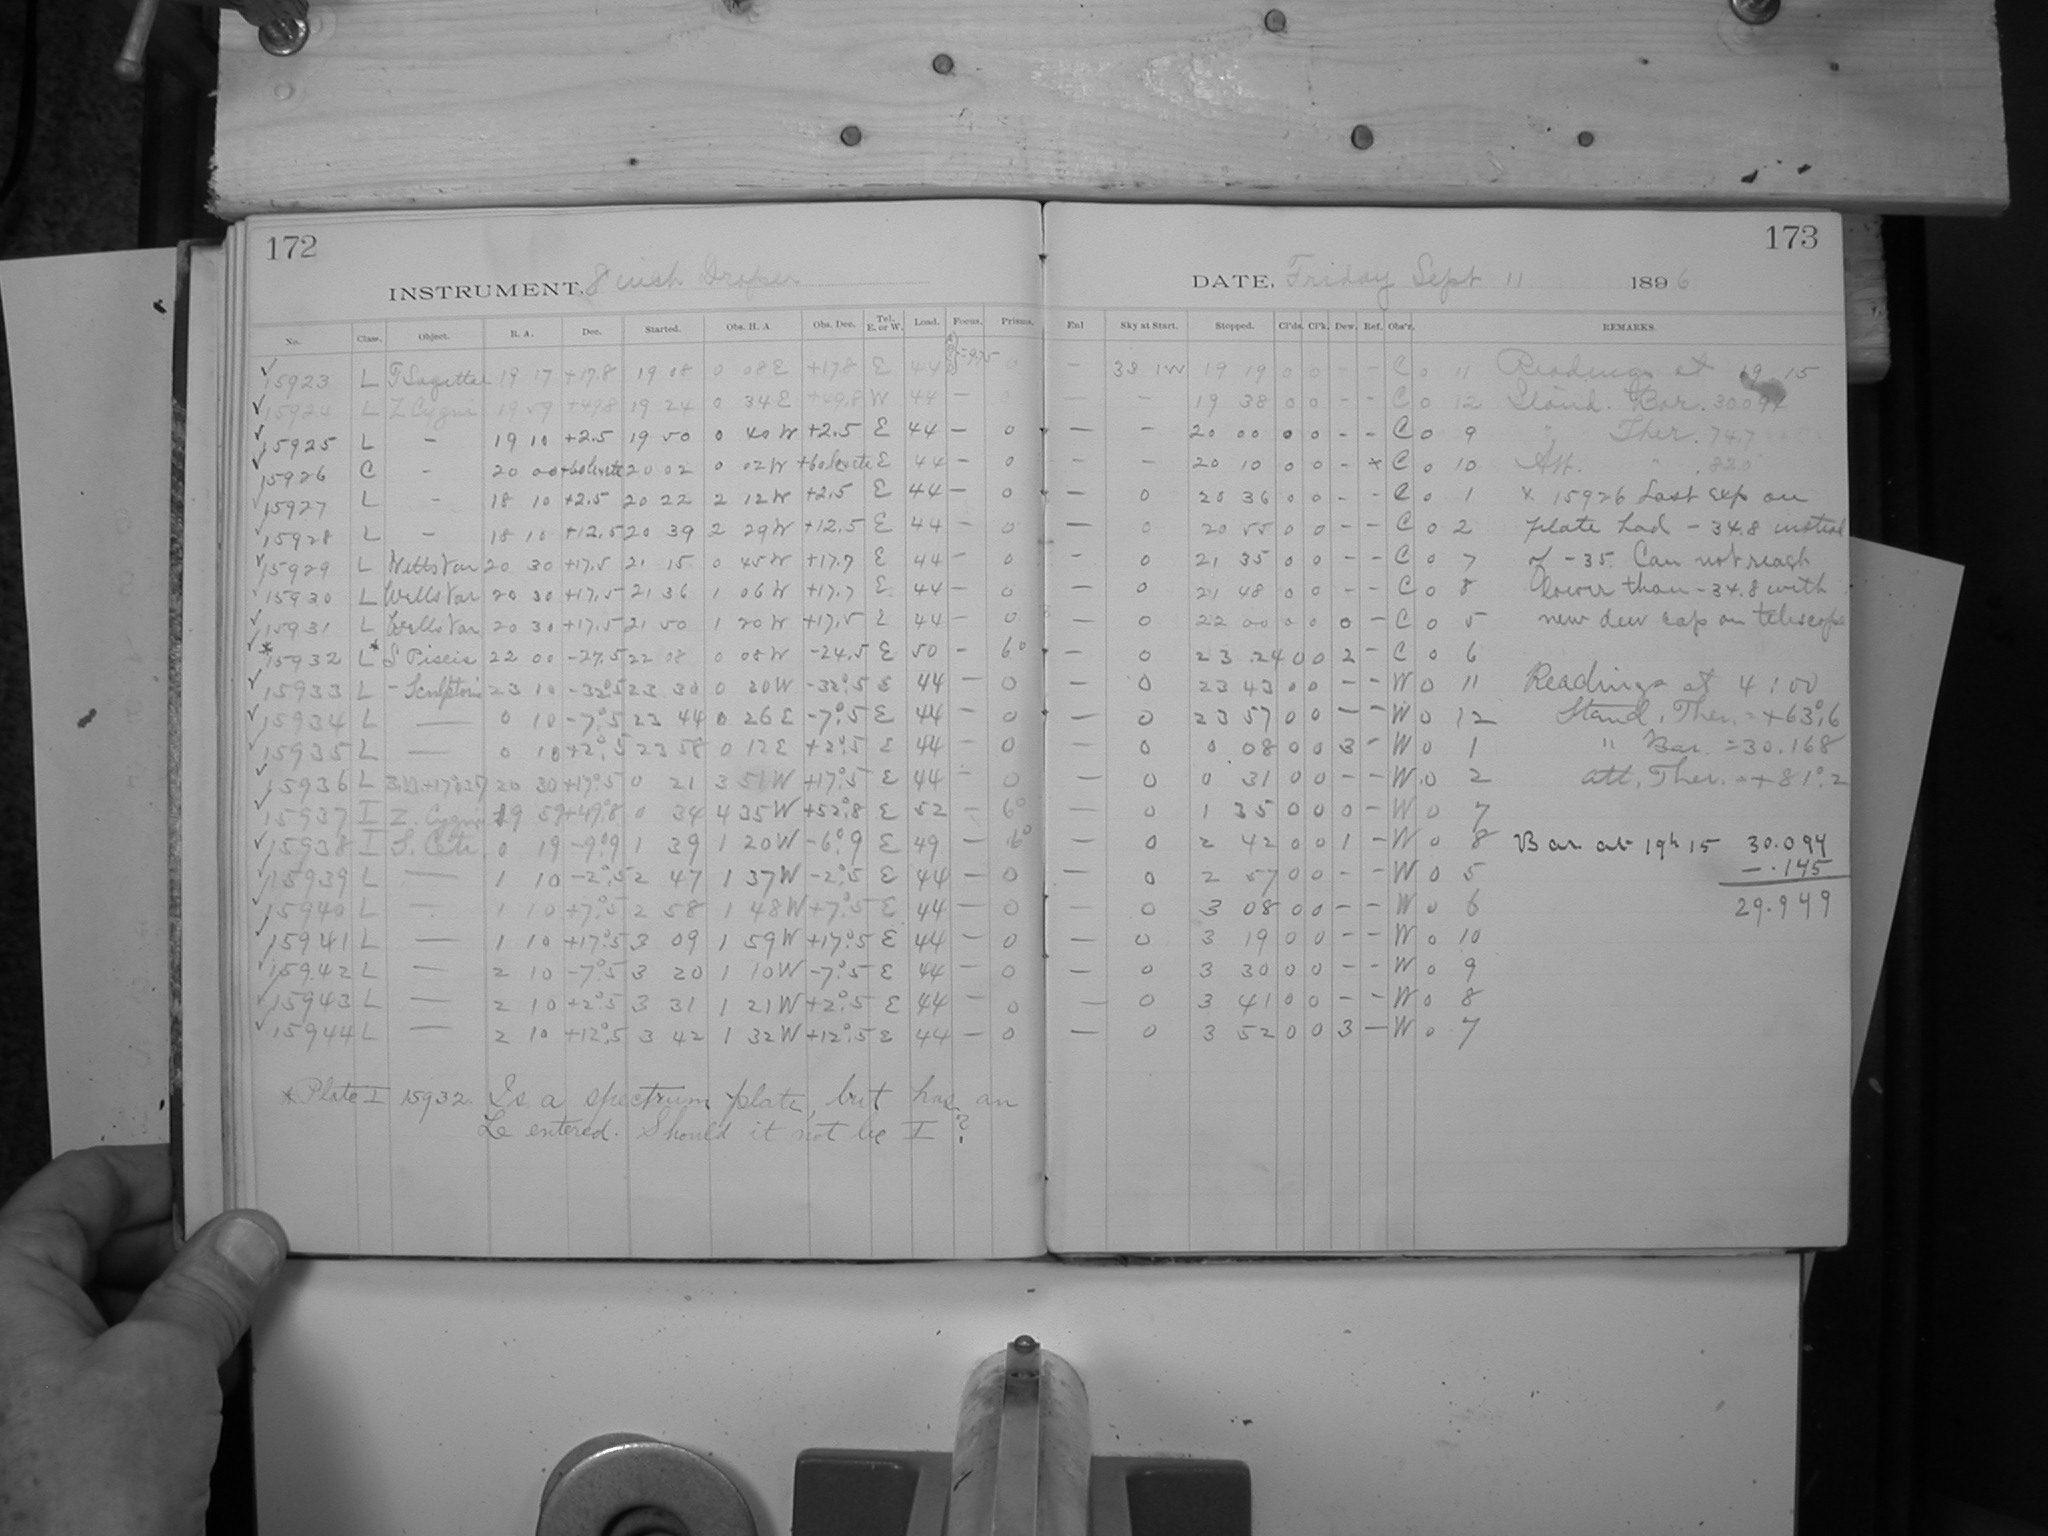 172
INSTRUMENT. 8 inch Draper
No. Class. Object. R. A. Dec. Started. Obs. H. A. Obs. Dec. Tel. E. or W. Load. Focus. Prisms.
15923 L T Sagittae 19 17 +17.8 19 08 0 08 E +17.8 E 44 0
15924 L Z Cygni 19 59 +49.8 19 24 0 34 E +49.8 W 44 — 0
15925 L - 19 10 +2.5 19 50 0 40 W +2.5 E 44 — 0
15926 C - 20 00 20 02 0 02 W E 44 — 0
15927 L - 18 10 +2.5 20 22 2 12 W +2.5 E 44 — 0
15928 L - 18 10 +12.5 20 39 2 29 W +12.5 E 44 — 0
15929 L Wells Var 20 30 +17.5 21 15 0 45 W +17.7 E 44 — 0
15930 L Wells Var 20 30 +17.5 21 36 1 06 W +17.7 E 44 — 0
15931 L Wells Var 20 30 +17.5 21 50 1 20 W +17.5 E 44 — 0
* 15932 L* S Piscis 22 00 -27.5 22 08 0 08 W -24.5 E 50 - 6°
15933 L - Sculptoris 23 10 -32°.5 23 30 0 20 W -32°.5 E 44 — 0
15934 L — 0 10 -7°.5 23 44 0 26 E -7°.5 E 44 — 0
15935 L — 0 10 +2°.5 23 58 0 12 E +2°.5 E 44 — 0
15936 L 20 30 +17°.5 0 21 3 51 W +17°.5 E 44 — 0
15937 I Z. Cygni 19 59 +49°.8 0 34 4 35 W +52°.8 E 52 — 6°
15938 I S. Ceti 0 19 -9°.9 1 39 1 20 W -6°.9 E 49 — 6°
15939 L — 1 10 -2°.5 2 47 1 37 W -2°.5 E 44 — 0
15940 L — 1 10 +7°.5 2 58 1 48 W +7°.5 E 44 — 0
15941 L — 1 10 +17°.5 3 09 1 59 W +17°.5 E 44 — 0
15942 L — 2 10 -7°.5 3 20 1 10 W -7°.5 E 44 — 0
15943 L — 2 10 +2°.5 3 31 1 21 W +2°.5 E 44 — 0
15944 L — 2 10 +12°.5 3 42 1 32 W +12°.5 E 44 — 0
* Plate I 15932. Is a spectrum plate, but has an
L entered. Should it not be I?
173
DATE, Friday Sept 11 1896
Enl Sky at Start. Stopped. Cl'ds. Cl'k. Dew. Ref. Obs'r. REMARKS.
— 19 19 0 0 - - C 0 11 Readings at 19 15
— - 19 38 0 0 - - C 0 12 Stand. Bar. 30.094
— - 20 00 0 0 - - C 0 9 " Ther. 74.7
— - 20 10 0 0 - x C 0 10 Att. " 82.0
— 0 20 36 0 0 - - C 0 1 x 15926 Last exp on
— 0 20 55 0 0 - - C 0 2 plate had -34.8 instead
- 0 21 35 0 0 - - C 0 7 of -35. Can not reach
— 0 21 48 0 0 - - C 0 8 lower than -34.8 with
— 0 22 00 0 0 0 - C 0 5 new dew cap on telescope
— 0 23 24 0 0 2 - C 0 6
— 0 23 43 0 0 - - W 0 11 Readings at 4:00
— 0 23 57 0 0 - - W 0 12 Stand. Ther. = +63°.6
— 0 0 08 0 0 3 - W 0 1 " Bar. = 30.168
— 0 0 31 0 0 - - W 0 2 att. Ther. = +81°.2
— 0 1 35 0 0 0 - W 0 7
— 0 2 42 0 0 1 - W 0 8 Bar at 19h 15 30.094
— 0 2 57 0 0 - - W 0 5 -.145
— 0 3 08 0 0 - - W 0 6 29.949
— 0 3 19 0 0 - - W 0 10
— 0 3 30 0 0 - - W 0 9
— 0 3 41 0 0 - - W 0 8
— 0 3 52 0 0 3 - W 0 7